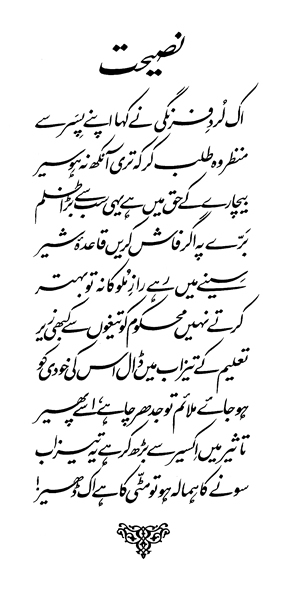 نصیحت
اک لُردِ فرنگی نے کہا اپنے پِسر سے
منظر وہ طلب کر کہ تری آنکھ نہ ہو سیر
بیچارے کے حق میں ہے یہی سب سے بڑا ظلم
بَرّے پہ اگر فاش کریں قاعدۂ شیر
سینے میں رہے رازِ مُلوکانہ تو بہتر
کرتے نہیں محکوم کو تیغوں سے کبھی زیر
تعلیم کے تیزاب میں ڈال اس کی خودی کو
ہو جائے ملائم تو جدھر چاہے، اسے پھیر
تاثیر میں اکسیر سے بڑھ کر ہے یہ تیزاب
سونے کا ہمالہ ہو تو مٹی کا ہے اک ڈھیر!